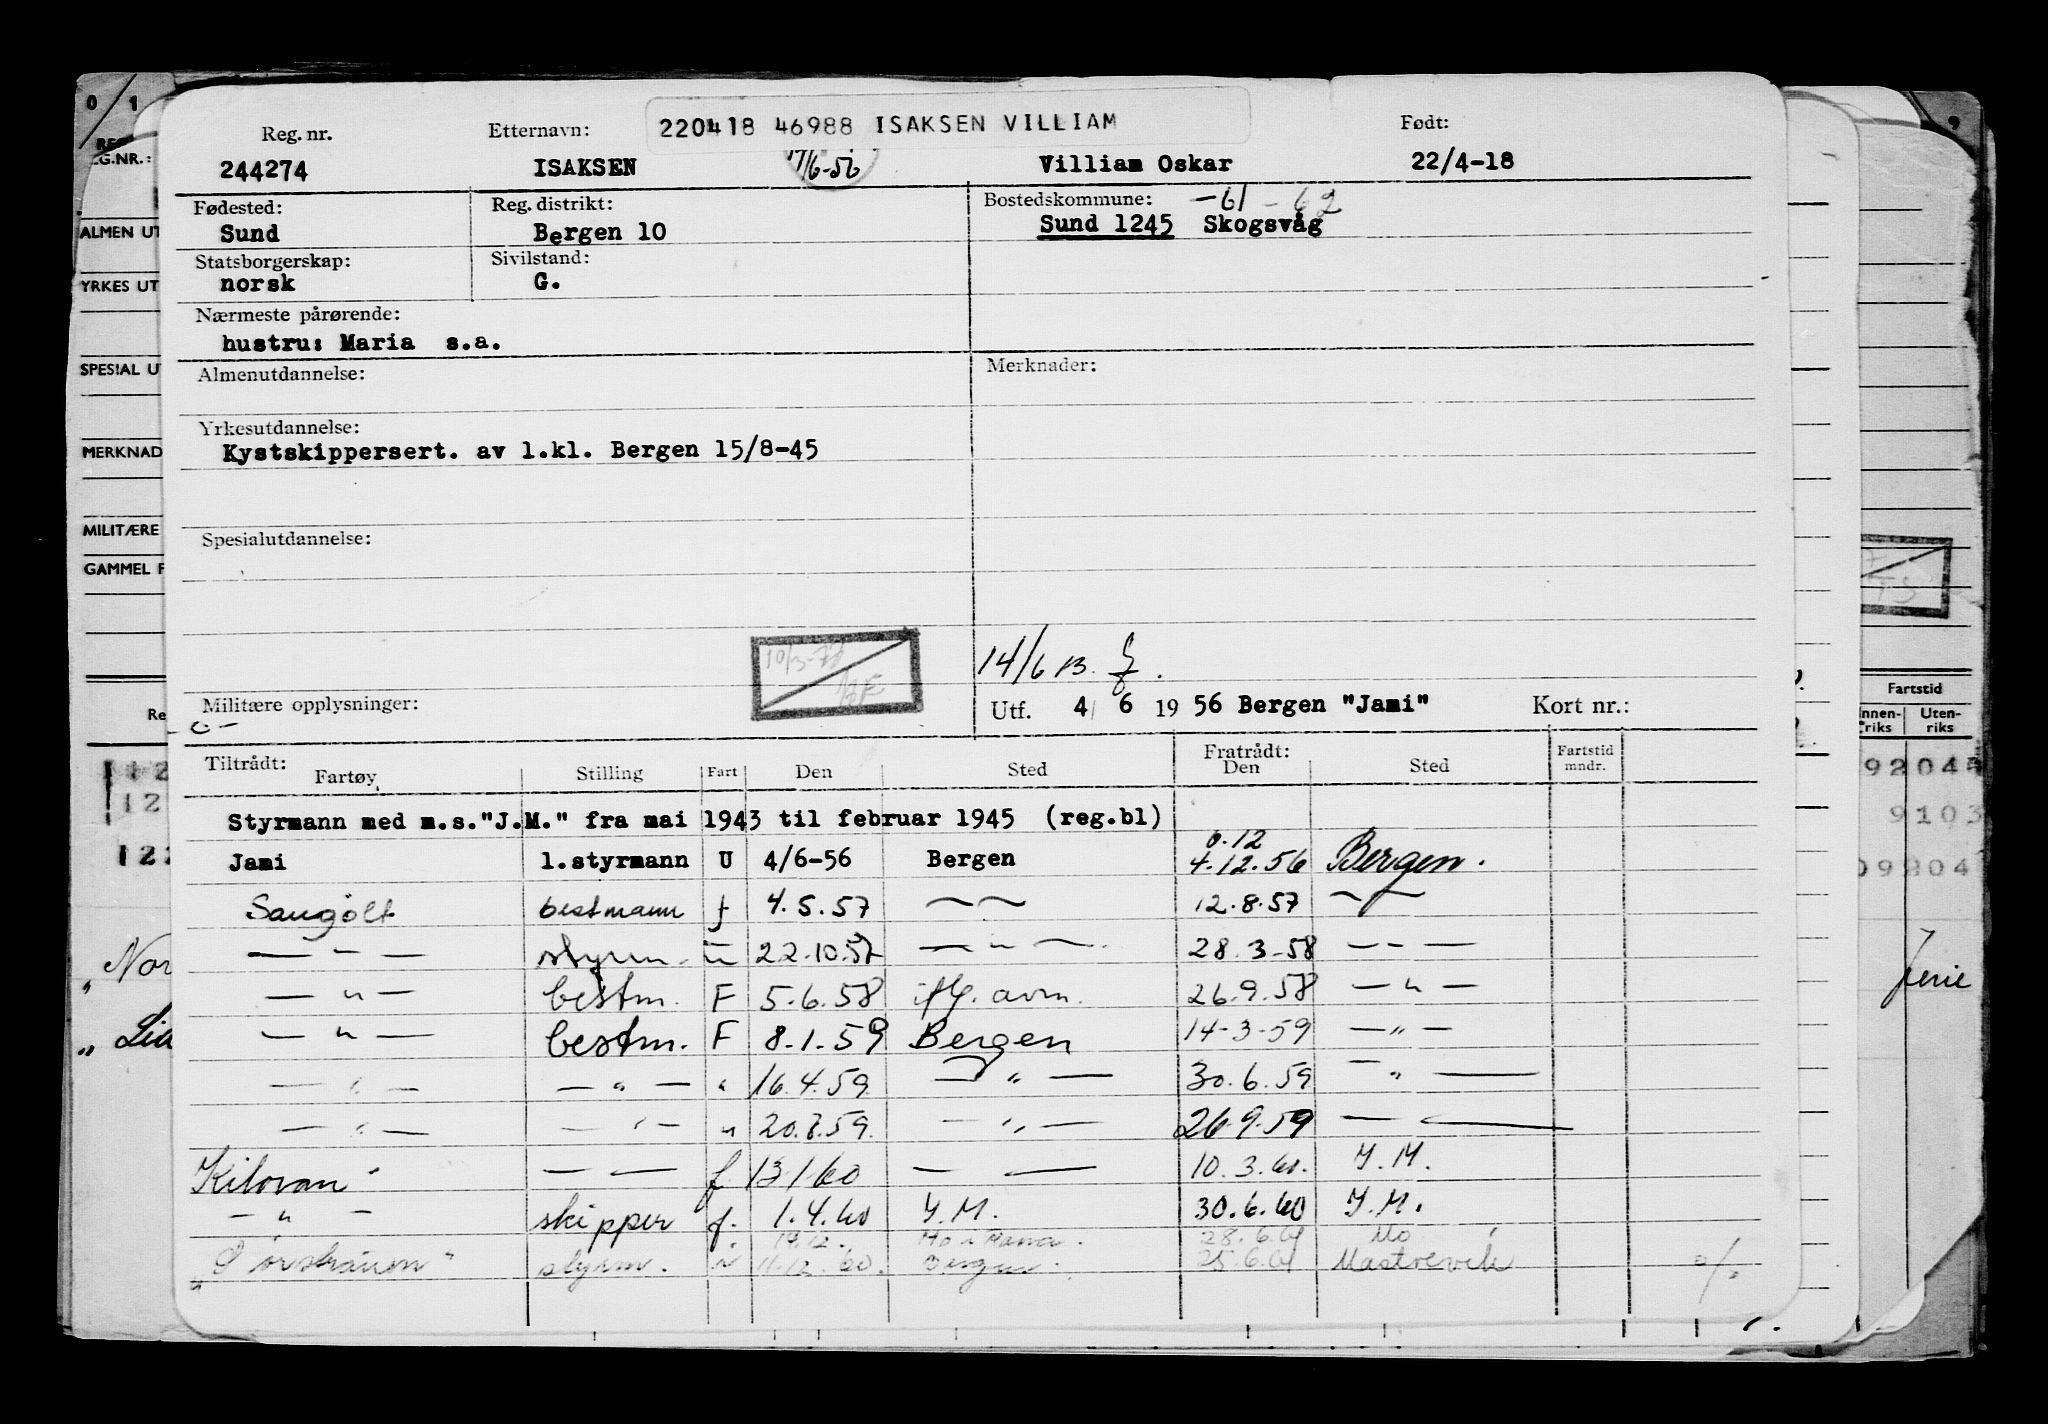 220418 46988 ISAKSEN VILLIAM
Reg. nr. Etternavn: Født:
244274 ISAKSEN 17/6-56 Villiam Oskar 22/4-18
Fødested: Reg. distrikt: Bostedskommune: -61 - 62
Sund Bergen 10 Sund 1245 Skogsvåg
Statsborgerskap: Sivilstand:
norsk G.
Nærmeste pårørende:
hustru: Maria s.a.
Almenutdannelse: Merknader:
Yrkesutdannelse:
Kystskippersert. av 1.kl. Bergen 15/8-45
Spesialutdannelse:
14/6 13.
Militære opplysninger: Utf. 4/ 6 19 56 Bergen "Jami" Kort nr.:
Tiltrådt: Fratrådt:
Fartøy Stilling Fart Den Sted Den Sted Fartstid mndr.
Styrmann med m.s."J.M." fra mai 1943 til februar 1945 (reg.bl)
0.12
Jami 1.styrmann U 4/6-56 Bergen 4.12.56 Bergen.
Saugolt bestmann f 4.5.57 — — 12.8.57 — —
— " — styrm. — 22.10.57 — " — 28.3-58 — - —
— " — bestm. F 5.6.58 26.9.58 — " —
— " — bestm. F 8.1.59 Bergen 14-3-59 — " —
— " — — " — " 16.4.59 — " — 30.6.59 — " —
— " — — " — " 20.8.59. — " — 26.9.59 — —
Kilovan — — f 13.1.60 — — 10.3.60. Y.M.
— " — skipper f. 1.4.60 Y.M. 30.6.60 Y.M.
19.12. 28.6.61 Mo
styrm. 11.12.60. Bergen. 25.6.61 Mastrevik
0 1
REG.NR.:
ALMEN UT
YRKES UT
SPESIAL U
MERKNAD
MILITÆRE
GAMMEL F
Re
Fartstid
Innen-riks Uten-riks
92045
9103
09204
" Nor
" Lia
ferie